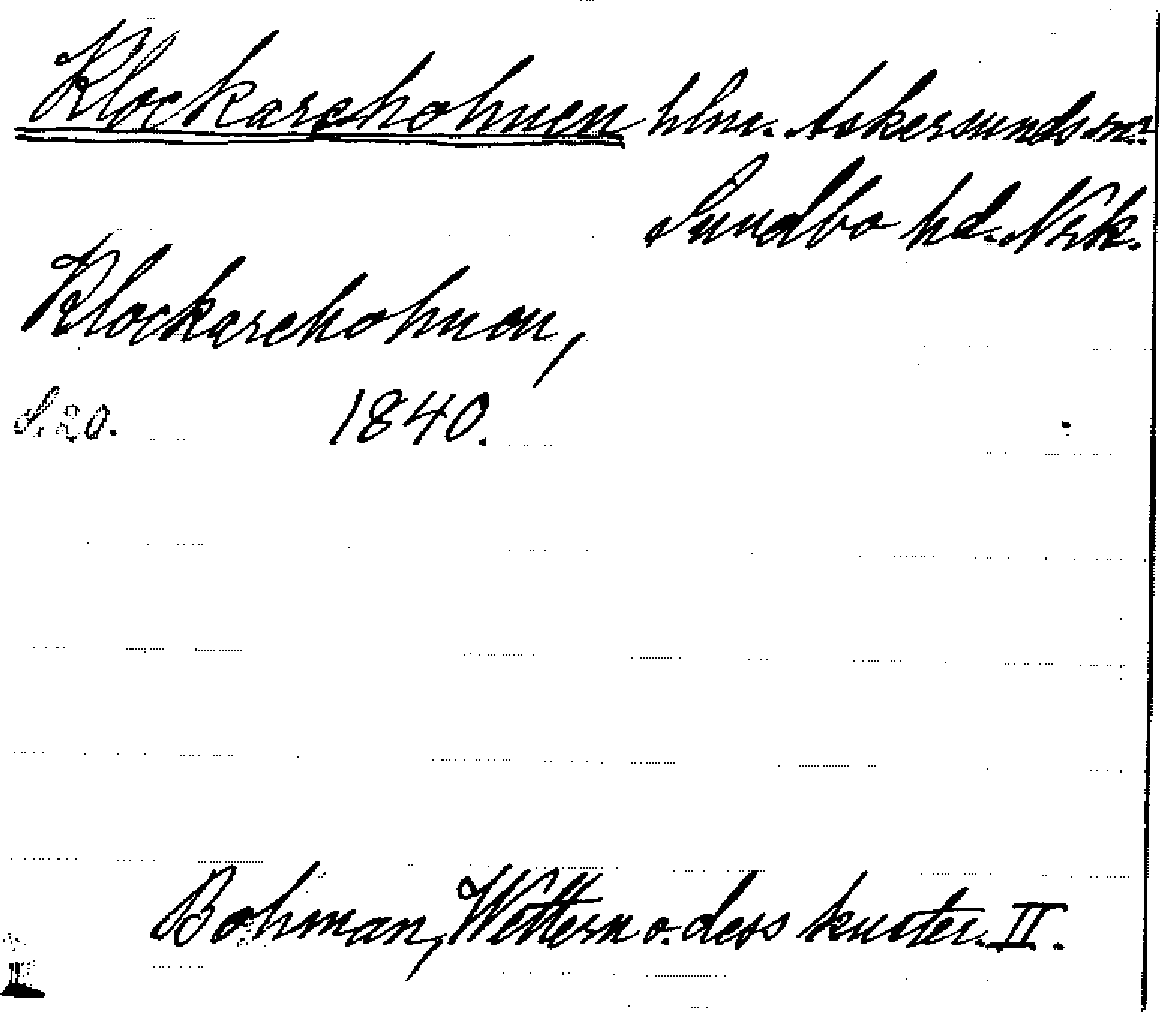 Klockareholmen hlm. Askersunds sn.
Sundbo hd. Nrk.
Klockareholmen,
s. 20. 1840.
Bohman, Wettern o. dess kuster. II.